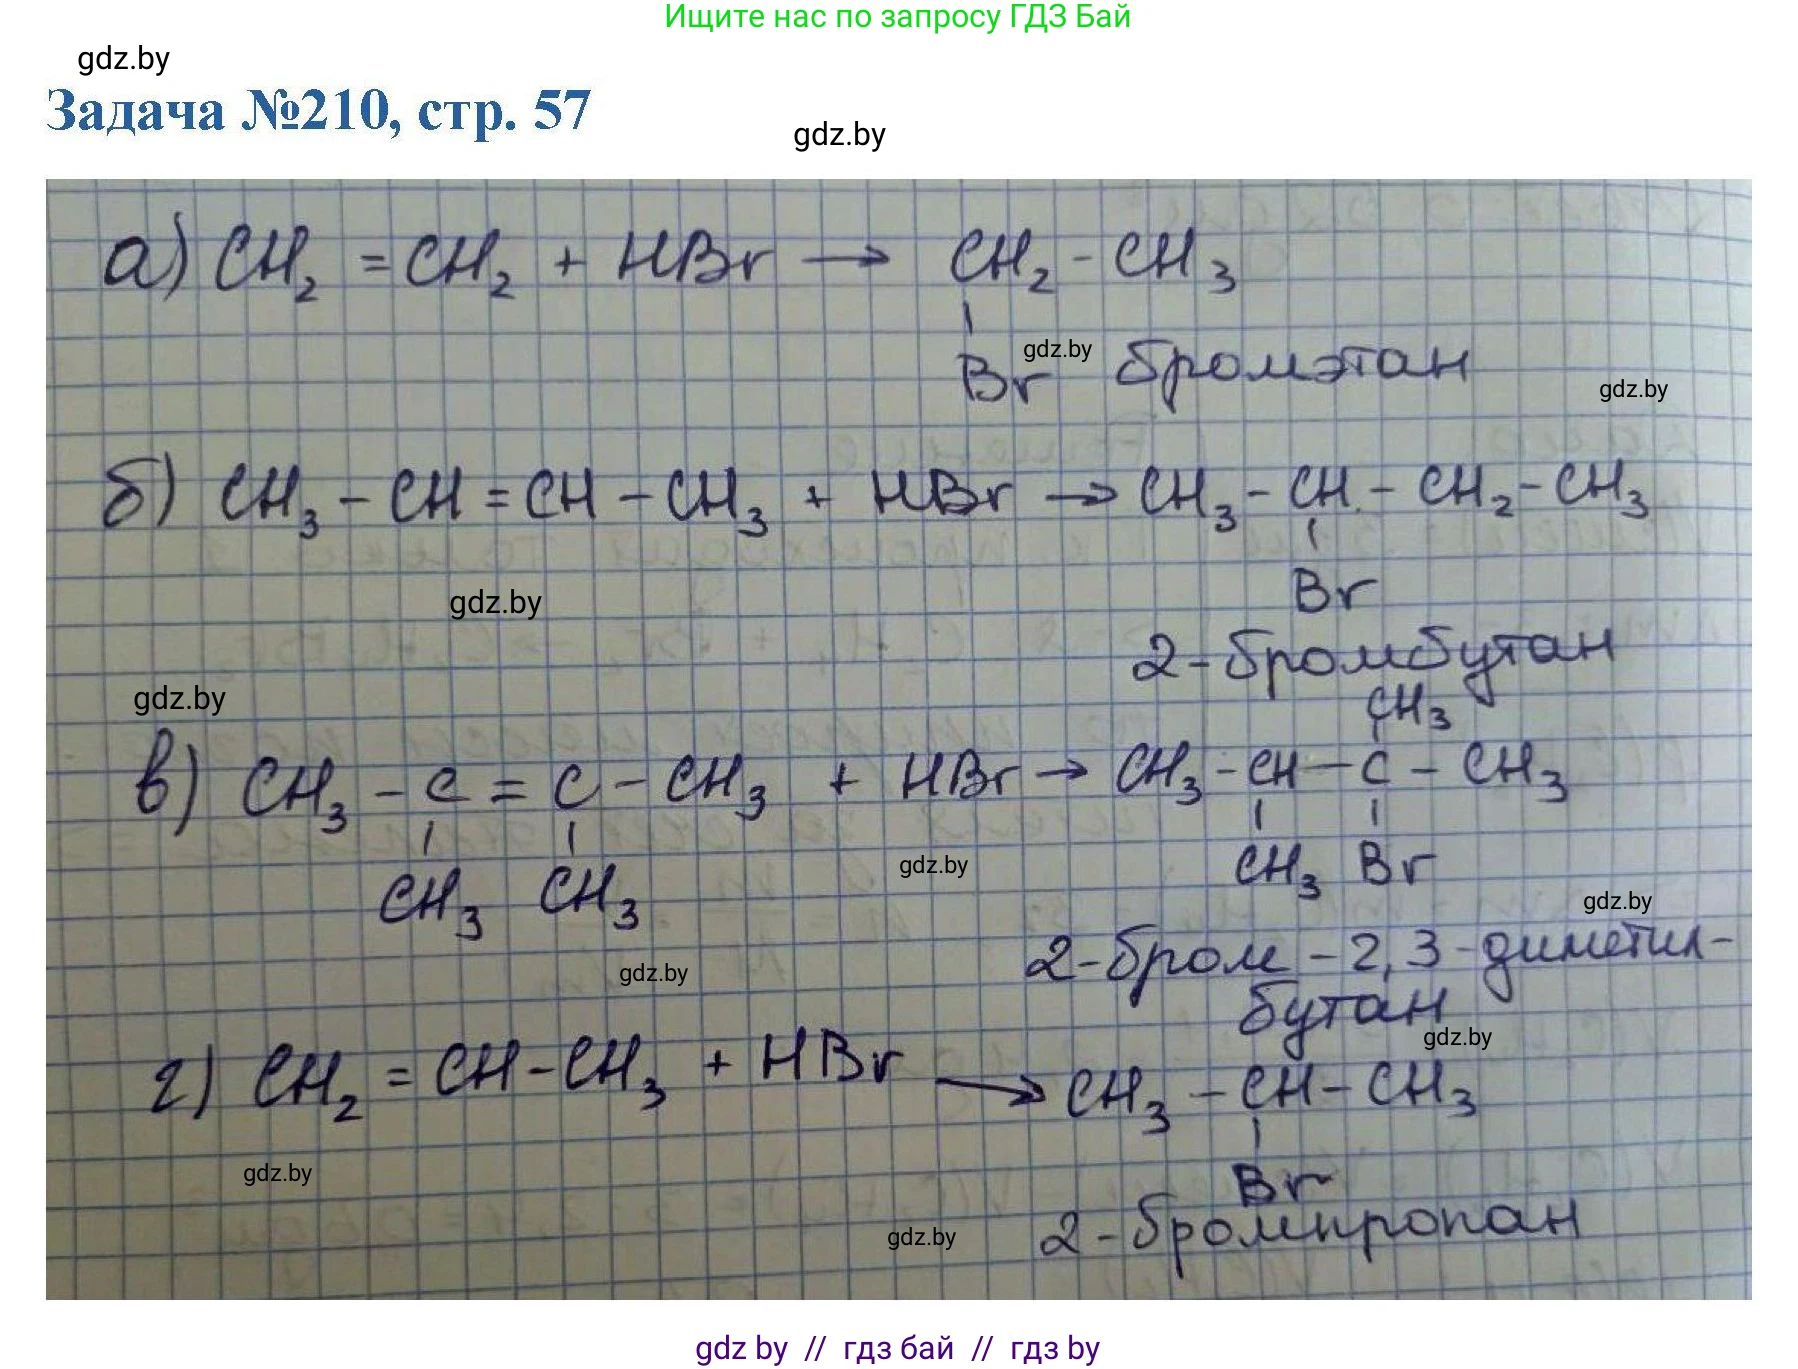 Ищите нас по запросу ГДЗ Бай
gdz.by
Задача №210, стр. 57
gdz.by
а) CH₂ = CH₂ + HBr → CH₂ - CH₃
Br gdz.by бромэтан
gdz.by
б) CH₃ - CH = CH - CH₃ + HBr → CH₃ - CH - CH₂ - CH₃
Br
gdz.by
2-бромбутан
gdz.by
CH₃
в) CH₃ - C = C - CH₃ + HBr → CH₃ - CH - C - CH₃
CH₃ CH₃ gdz.by CH₃ Br
gdz.by
2-бром-2,3-диметил-
gdz.by
бутан
gdz.by
г) CH₂ = CH - CH₃ + HBr → CH₃ - CH - CH₃
gdz.by
Br
2-бромпропан
gdz.by
gdz by // гдз бай // гдз by